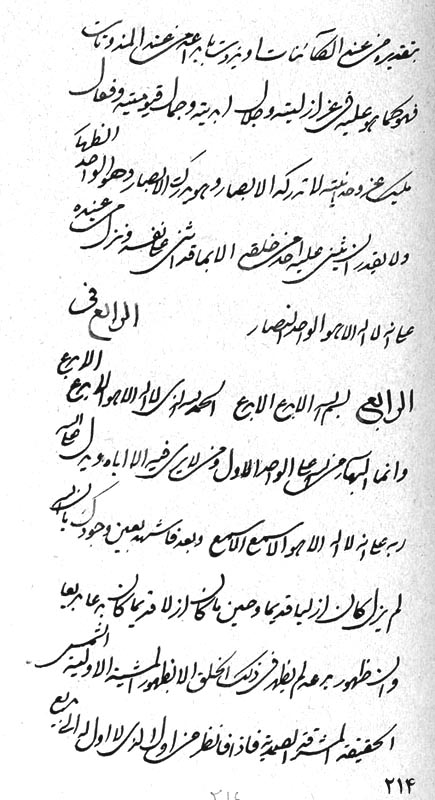 بتقديره من عند الكائنات او يذوت بابداعه من عند المذوتات
فهو كما هو عليه في عز ازليته و جلال ابديته و جمال قيوميته و فعال
مليك عز وحدانيته لا تدركه الابصار و هو يدرك الابصار و هو الواحد الظهار
و لا يقدر ان يثني عليه احد من خلقه الا بما قد اثنى على نفسه و نزل من عنده
على انه لا اله الا هو الواحد النصار الرابع في
الرابع بسم الله الابدع الابدع الحمد لله الذي لا اله الا هو الابدع الابدع
و انما البهاء من الله على الواحد الاول و من لا يرى فيه الا اياه و يدل على الله
ربه على انه لا اله الا هو الاسمع الاسمع و بعد فاشهد بعين وجودك بان الله
لم يزل كان ازليا قديما و حين ما كان ازلا قديما كان بدعا بديعا
و ان ظهور بدعه لم يظهر في ذلك الخلق الا بظهور المشية الاولية الشمس
الحقيقة المشرقة الصمدية فاذا فانظر من اول الذي لا اول له الى بديع
۲۱۴